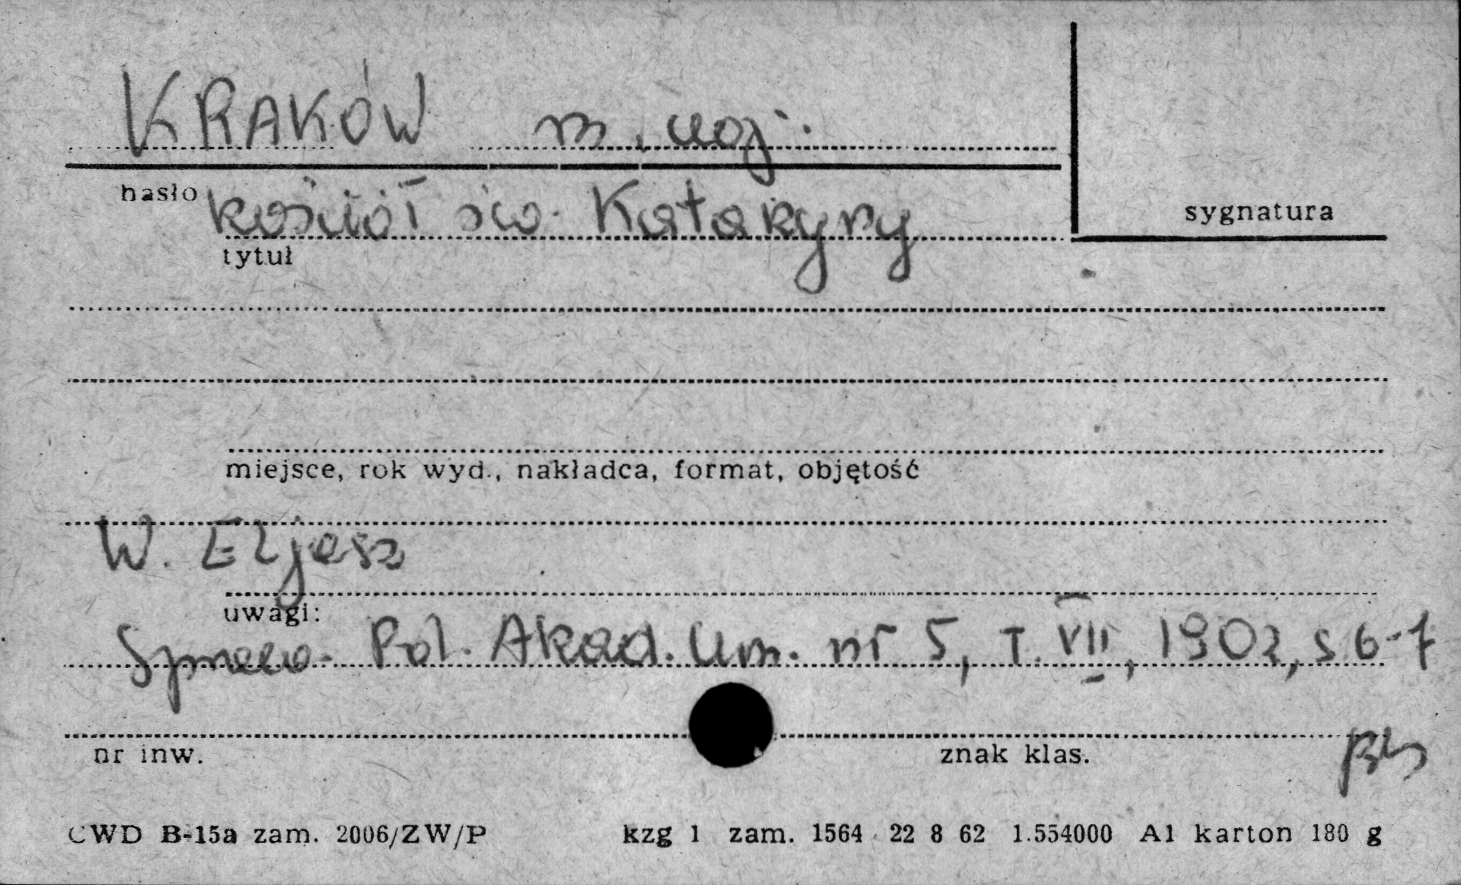 KRAKÓW m. woj.
hasło
sygnatura
kościół św. Katarzyny
tytuł
miejsce, rok wyd., nakładca, format, objętość
W. Eljasz
uwagi:
Sprawo. Pol. Akad. Um. nr 5, T. VII, 1902, s. 6-7
nr inw.
znak klas.
CWD B-15a zam. 2006/ZW/P kzg 1 zam. 1564 22 8 62 1.554000 A1 karton 180 g